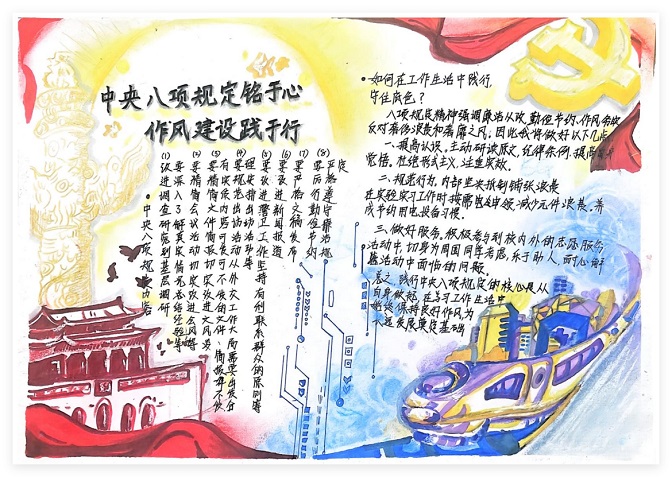 中央八项规定铭于心
作风建设践于行
•中央八项规定内容
(1)要改进调查研究到基层调研
要深入了解真实情况总结经验
(2)要精简会议活动切实改进会风
(3)要精简文件简报切实改进文风没
有实质内容可发可不发的文件、简报一律不发
(4)要规范出访活动从外交工作大局需要出发合
理安排出访活动
(5)要改进警卫工作坚持有利联系群众的原则
(6)要改进新闻报道
(7)要严格文稿发布
(8)要厉行勤俭节约
严格遵守廉洁规定
•如何在工作生活中践行,
守住底色?
八项规定精神强调廉洁从政,勤俭节约、作风务实
反对奢侈浪费和奢靡之风,因此我将做好以下几点
一、提高认识、主动研读原文,纪律条例,提高
觉悟,杜绝形式主义,注重实效。
二、规范行为,内部坚决抵制铺张浪费
在实验实习工作时按需申领,减少元件浪费,养
成节约用电设备习惯。
三、做好服务,积极参与到校内外的志愿服务
活动中,切身为周围同学考虑,乐于助人,耐心解
答活动中面临的问题。
总之,践行中央八项规定的核心是从
自身做起,在学习工作生活中
始终保持良好作风为
发展奠定基础